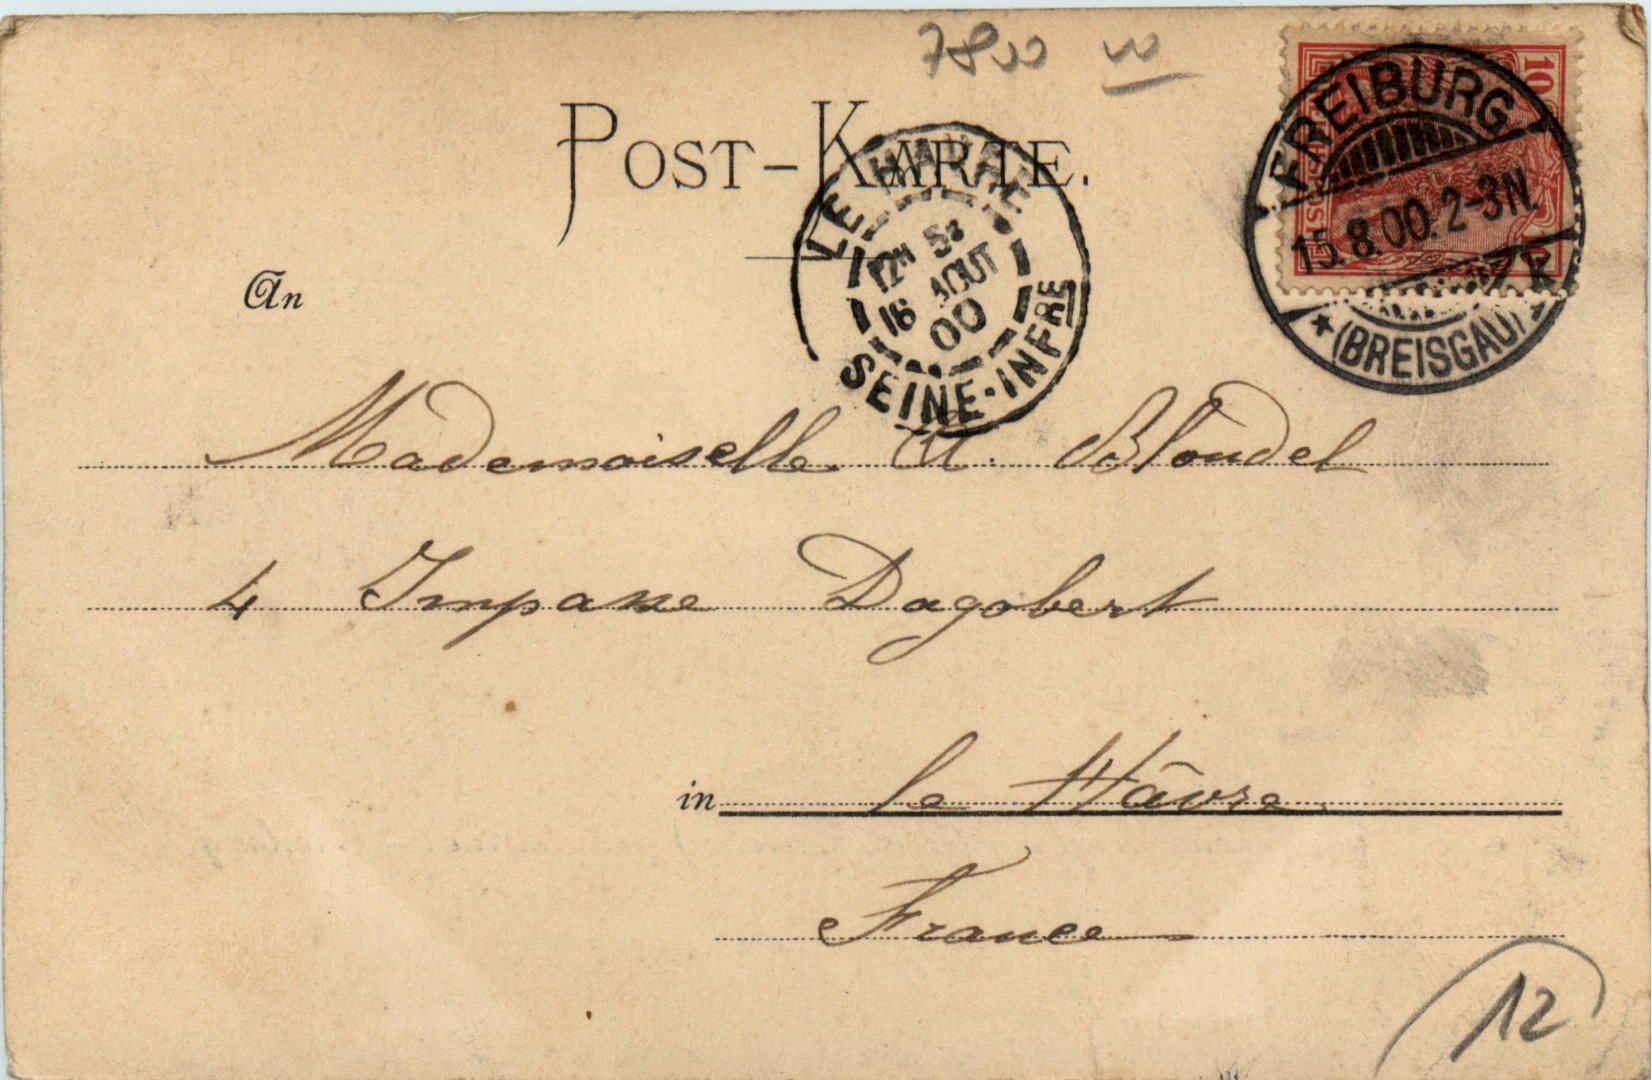 7800
POST-KARTE.
10
FREIBURG
15.8.00.2-3N.
*(BREISGAU)*
LE HAVRE
12H 5
16 AOUT
00
SEINE-INFRE
An
Mademoiselle A. Blondel
4 Impasse Dagobert
in le Hâvre
France
12